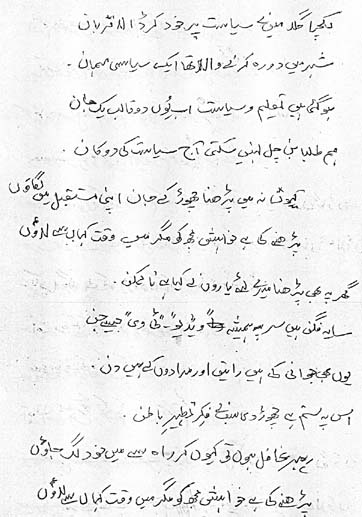 لکچر اگلا میں نے سیاست پر خود کر ڈالا قربان
شہر میں دورہ کرنے والا تھا ایک سیاسی مہمان۔
ہو گئی ہیں تعلیم و سیاست اب یوں دو قالب یک جان
ہم طلبا بن چل نہیں سکتی آج سیاست کی دوکان۔
کیوں نہ میں پڑھنا چھوڑ کے جان اپنی مستقبل میں لگاؤں
پڑھنے کی ہے خواہش مجھ کو مگر میں وقت کہاں سے لاؤں
گھر پہ بھی پڑھنا میرے لئے یاروں نے کیا ہے نا ممکن۔
سایہ فگن ہیں سر پہ ہمیشہ "ویڈیو" "ٹی وی" جیسے جن
یوں بھی جوانی کی ہیں راتیں اور مرادوں کے ہیں دن۔
اس پہ ستم ہے چھوڑ دی سب نے فکرِ تطہیرِ باطن۔
رہبر غافل ہوں تو کیوں کر راہ سے میں خود لگ جاؤں
پڑھنے کی ہے خواہش مجھ کو مگر میں وقت کہاں سے لاؤں